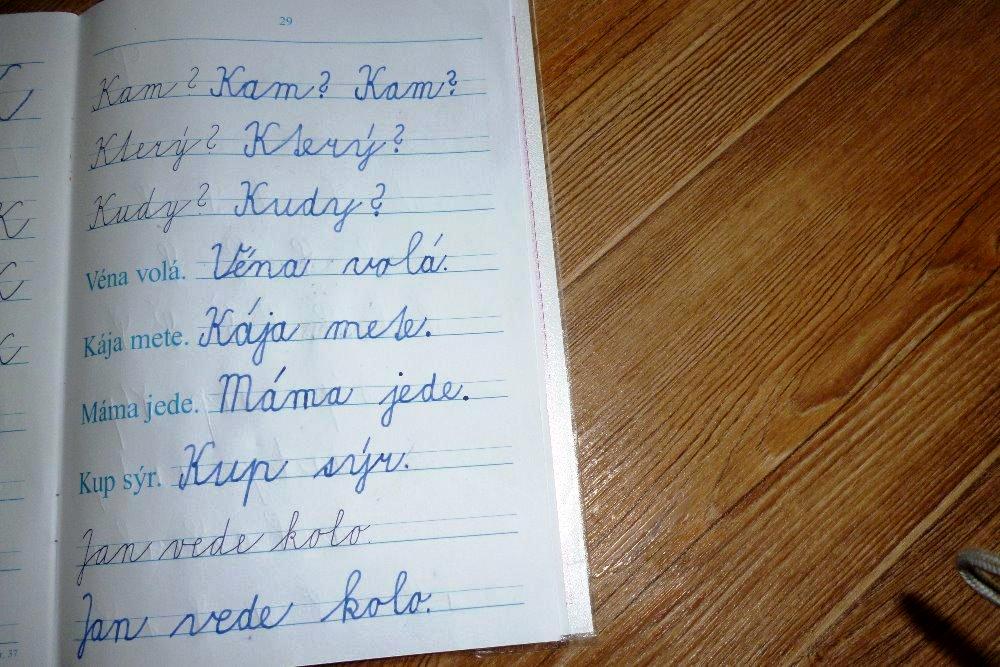 29
Kam? Kam? Kam?
Který? Který?
Kudy? Kudy?
Véna volá. Véna volá.
Kája mete. Kája mete.
Máma jede. Máma jede.
Kup sýr. Kup sýr.
Jan vede kolo.
Jan vede kolo.